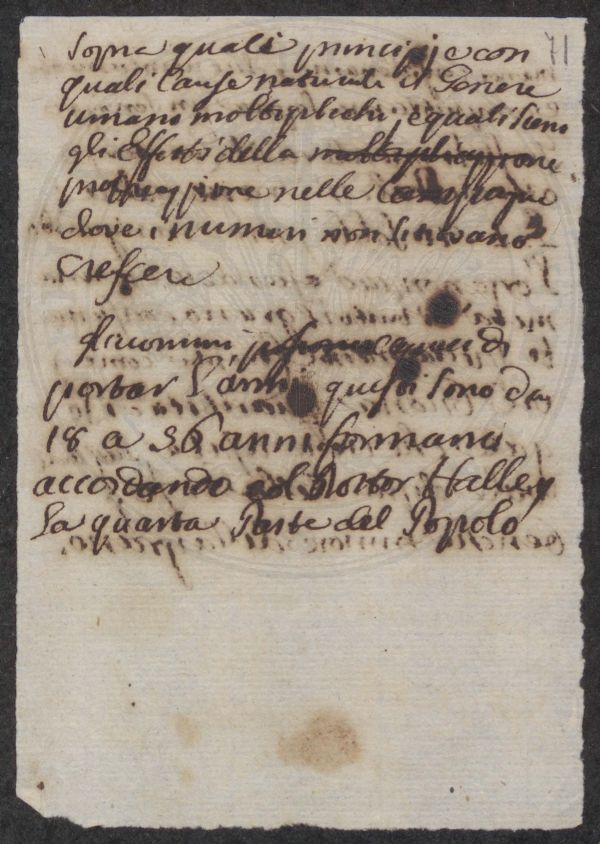 71
sopra quali principj e con
quali Cause naturali il Genere
umano moltiplichi, e quali sieno
gli Effetti della moltiplicazione
nelle Campagne
dove i numeri non si trovano
crescere
gl'uomini capaci di
portar l'armi, questi sono da
18 a 56 anni formano
accordando col Dottor Halley
la quarta Parte del Popolo